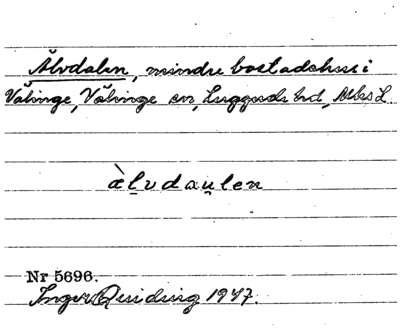 Älvdalen, mindre bostadshus i
Välinge, Välinge sn, Luggude hd, Mlhs L
ὰl̠vdau̠len
Nr 5696.
Inger Quiding 1947.